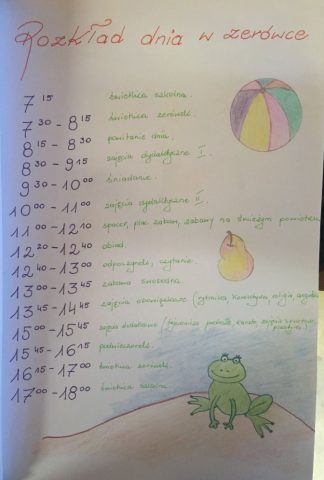 Rozkład dnia w zerówce
7 15 świetlica szkolna.
7 30 - 8 15 świetlica zerówki.
8 15 - 8 30 powitanie dnia.
8 30 - 9 15 zajęcia dydaktyczne I.
9 30 - 10 00 śniadanie.
10 00 - 11 00 zajęcia dydaktyczne II.
11 00 - 12 10 spacer, plac zabaw, zabawy na świeżym powietrzu
12 20 - 12 40 obiad.
12 40 - 13 00 odpoczynek, czytanie.
13 00 - 13 45 zabawa swobodna.
13 45 - 14 45 zajęcia obowiązkowe (rytmika, korektywa, religia, angielski)
15 00 - 15 45 zajęcia dodatkowe (tajemnice karate,
15 45 - 16 15 podwieczorek.
16 15 - 17 00 świetlica zerówki.
17 00 - 18 00 świetlica szkolna.